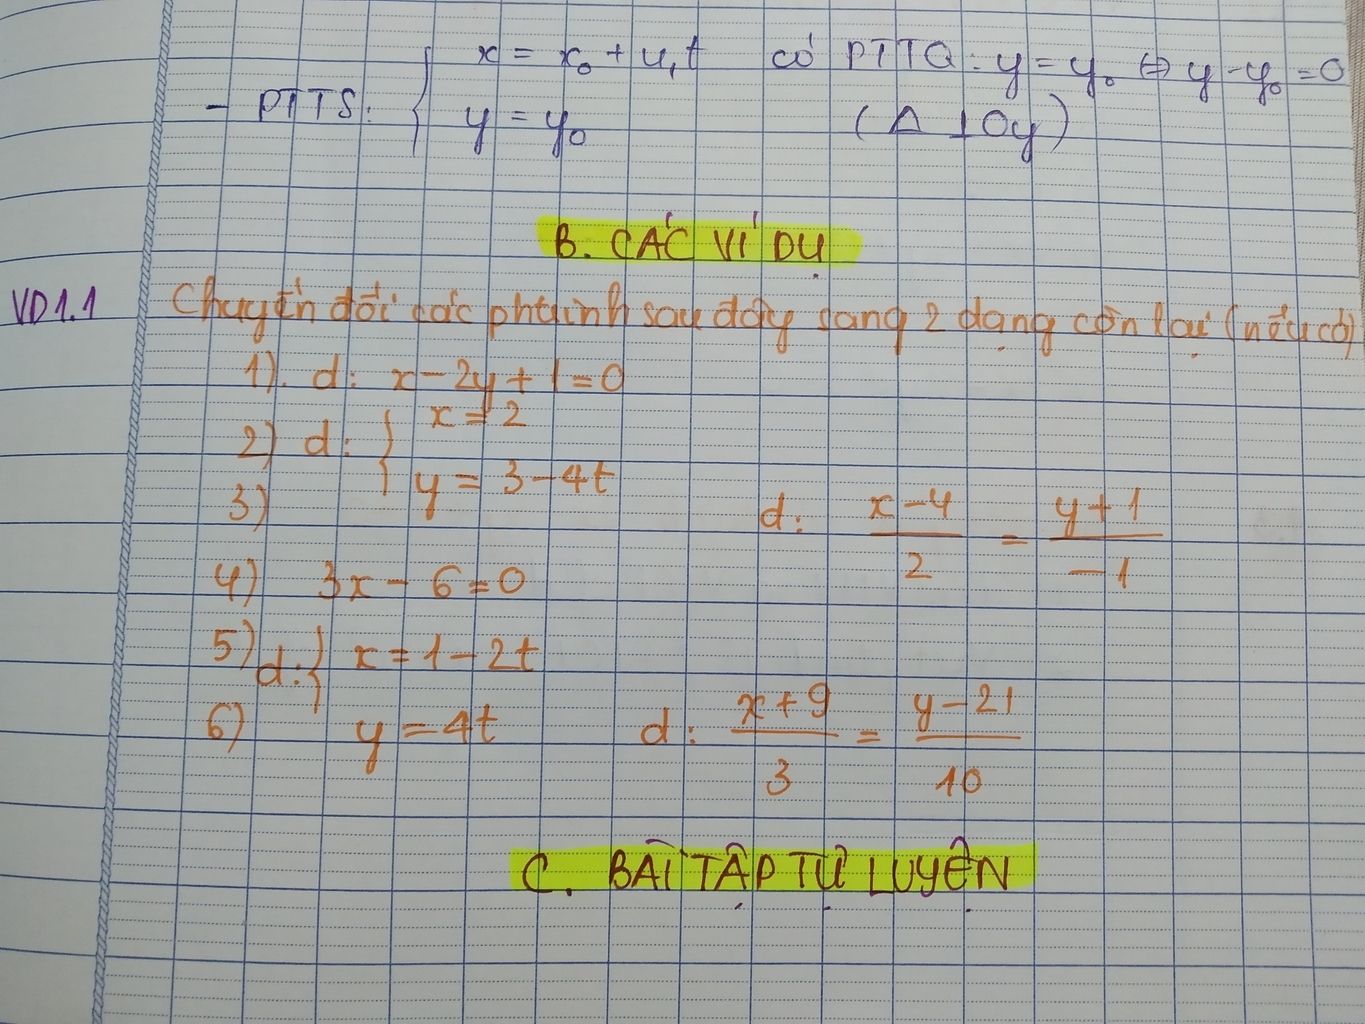 x = x₀ + u₁t có PTTQ: y = y₀ ⇔ y - y₀ = 0
- PTTS: {
y = y₀ (Δ ⊥ Oy)
B. CÁC VÍ DỤ
VD1.1 Chuyển đổi các phtrình sau đây sang 2 dạng còn lại (nếu có)
1). d: x - 2y + 1 = 0
2) d: { x = 2
y = 3 - 4t
3) d: (x - 4)/2 = (y + 1)/-1
4) 3x - 6 = 0
5) d: { x = 1 - 2t
y = 4t
6) d: (x + 9)/3 = (y - 21)/10
C. BÀI TẬP TỰ LUYỆN